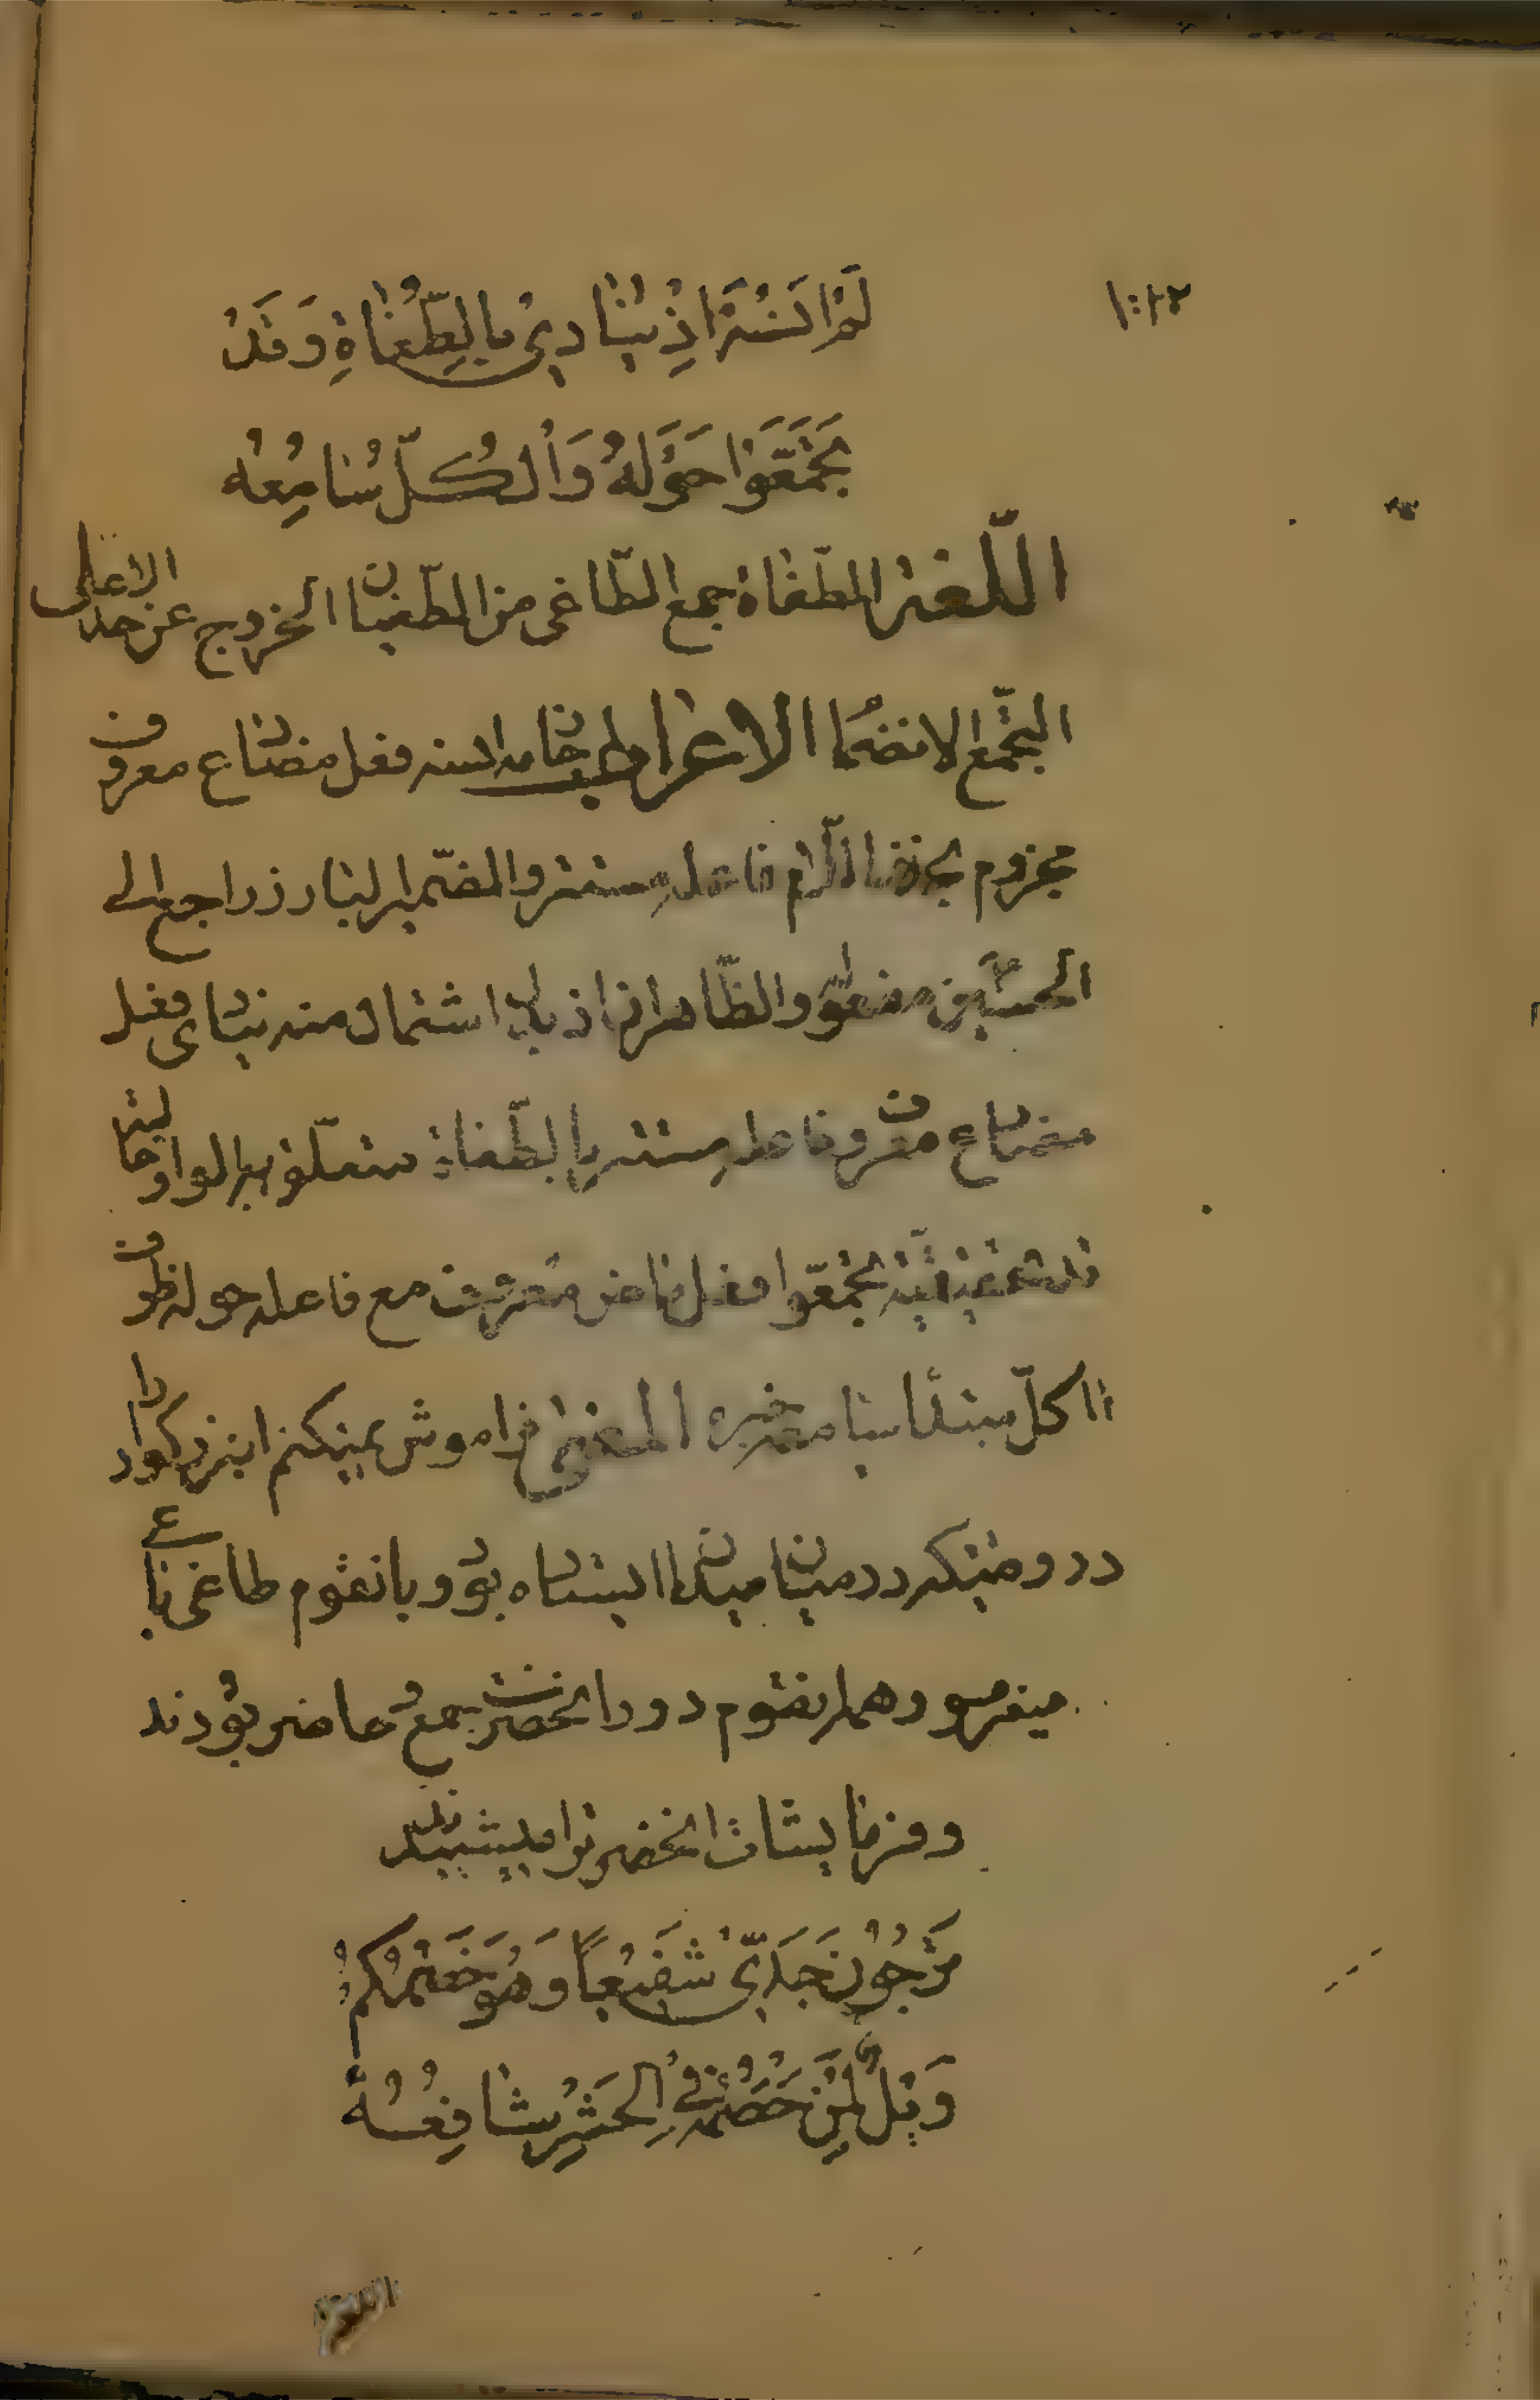 لَمْ اَنْسَهُ اِذْ يُنَادِي بِالطُّغَاةِ وَقَدْ
تَجَمَّعُوا حَوْلَهُ وَالْكُلُّ سَامِعُهُ
اللّغة الطّغاة جمع الطّاغى من الطّغيان الخروج عن حدّ الاعلى
التّجمع الانضمام الاعراب لم انسه فعل مضارع معروف
مجزوم بحذف اللّام فاعله مستتر والضّمير البارز راجع الى
الحسين مفعوله والظّاهر ان اذ بدل اشتمال منه ينادى فعل
مضارع معروف فاعله مستتر بالطّغاة متعلّق به الواو حاليّة
قد تحقيقيّة تجمّعوا فعل ماض معروف مع فاعله حوله ظرف
الكلّ مبتدأ سامعه خبره المعنى فراموش نميكنم ان بزرگوار را
در وقتيكه در ميان ميدان ايستاده بود و بانقوم طاغى ياغى
ميفرمود و همه انقوم دور انحضرت جمع و حاضر بودند
و فرمايشات انحضرترا ميشنيدند
تَرْجُونَ جَدّي شَفِيعاً وَهُوَ خَصْمُكُمُ
وَيْلٌ لِمَنْ خَصْمُهُ فِي الْحَشْرِ شَافِعُهُ